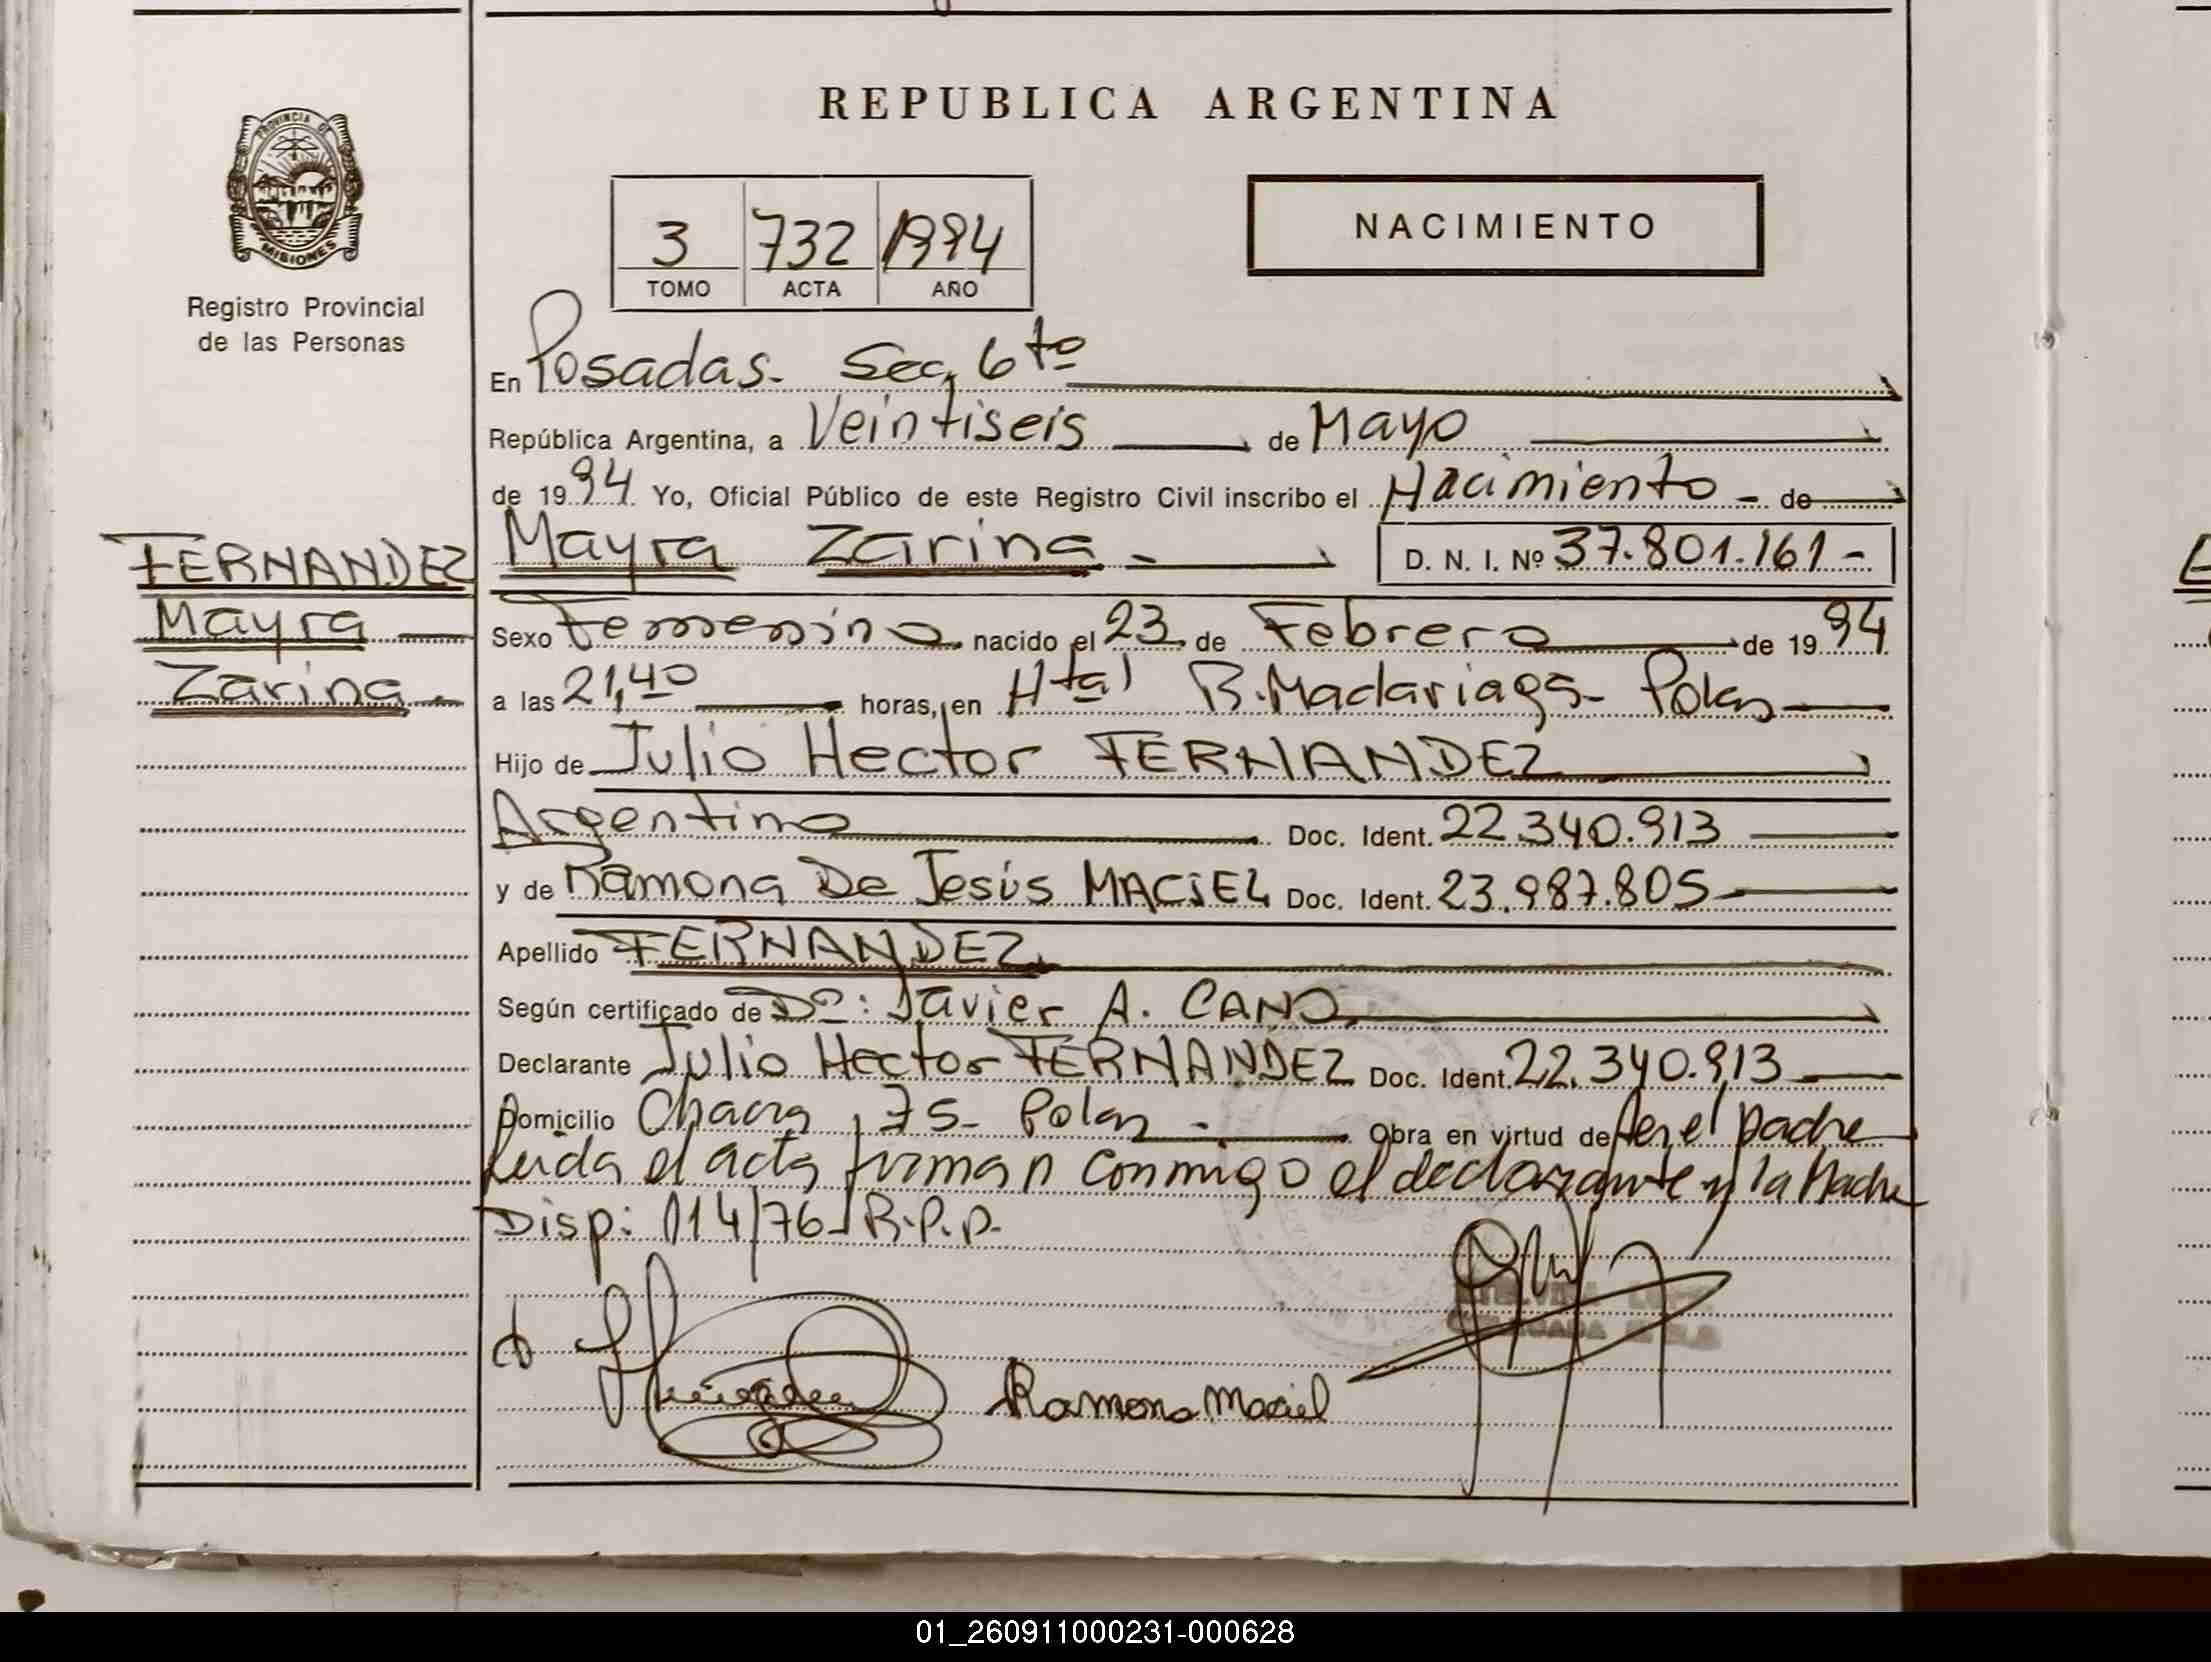 REPUBLICA ARGENTINA
PROVINCIA DE
MISIONES
Registro Provincial
de las Personas
3 732 1994
TOMO ACTA AÑO
NACIMIENTO
En Posadas. Sec. 6to
República Argentina, a Veintiseis de Mayo
de 1994 Yo, Oficial Público de este Registro Civil inscribo el Nacimiento - de
FERNANDEZ
Mayra
Zarina.-
Mayra Zarina.- D. N. I. Nº 37.801.161-
Sexo Femenino nacido el 23 de Febrero de 1994
a las 21,40 horas, en Htal R. Madariaga- Pdas
Hijo de Julio Hector FERNANDEZ
Argentino Doc. Ident. 22.340.913
y de Ramona De Jesús MACIEL Doc. Ident. 23.987.805-
Apellido FERNANDEZ
Según certificado de Dr: Javier A. CANO
Declarante Julio Hector FERNANDEZ Doc. Ident. 22.340.913
Domicilio Chacra 75- Pdas - Obra en virtud de ser el padre
Leida el acta firman conmigo el declarante y la Madre
Disp: 014/76 R.P.P.
Ramona Maciel
01_260911000231-000628